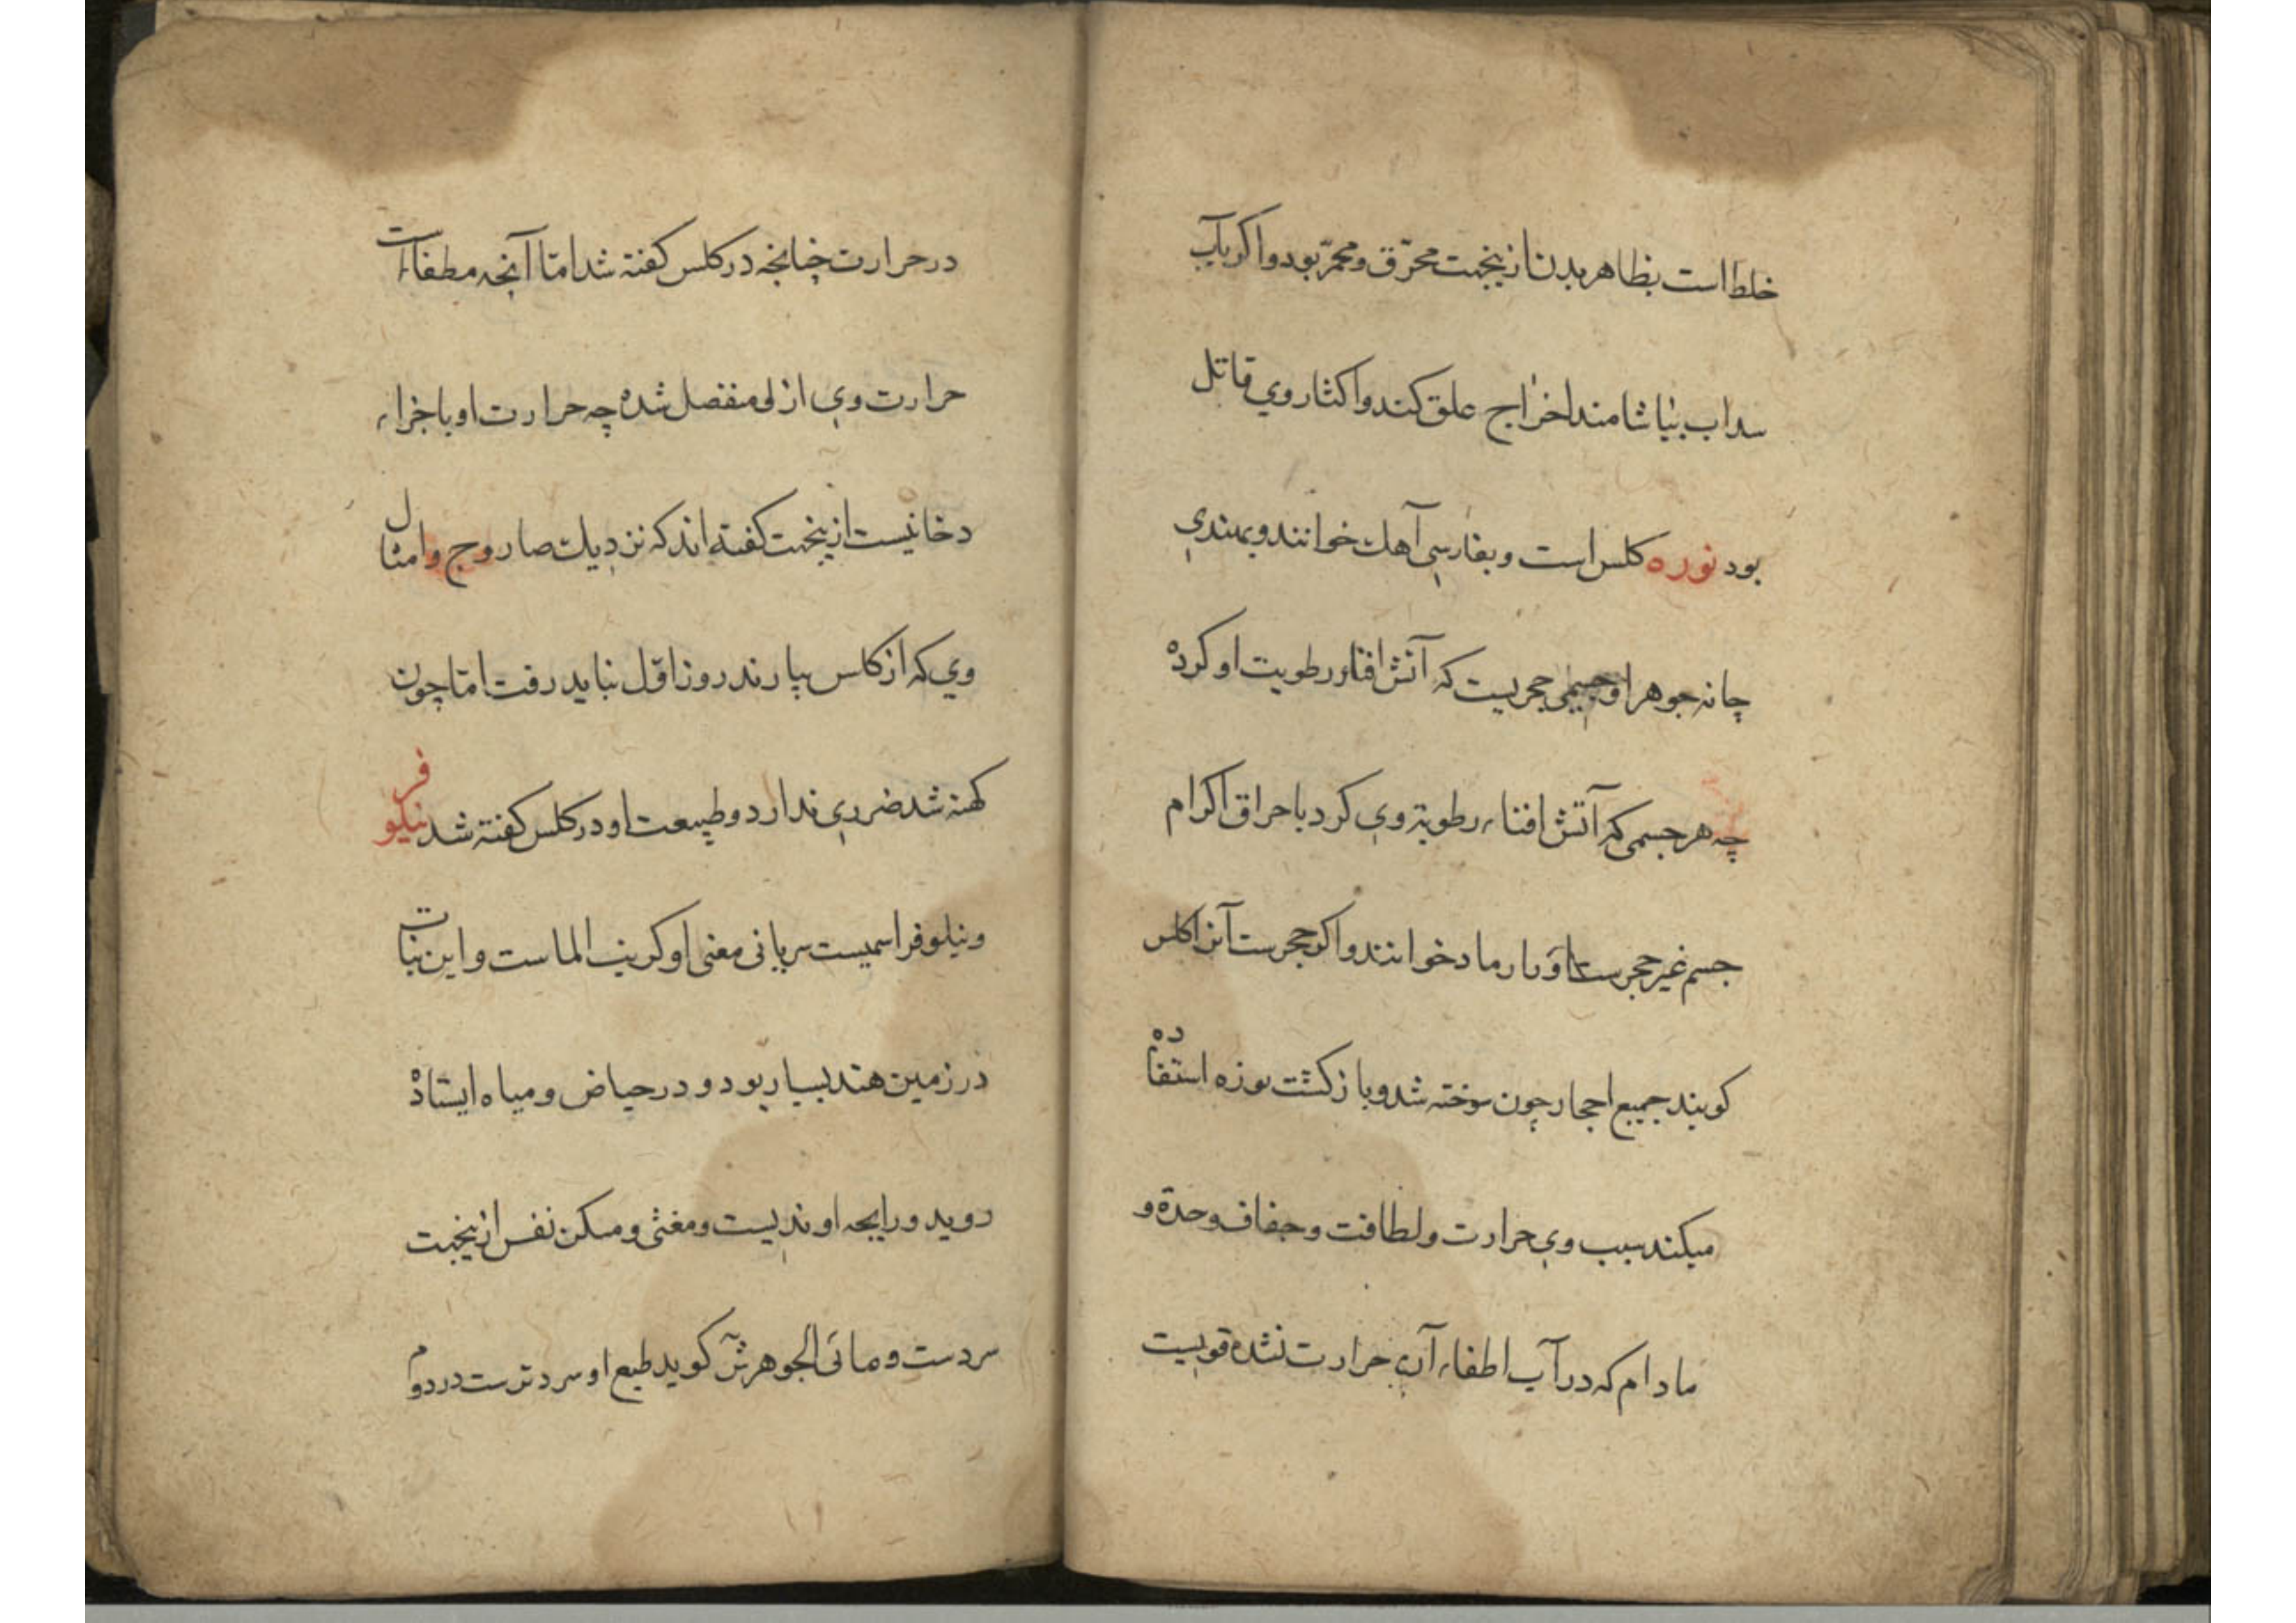 خلط است بظاهر بدن ازینجهت محرّق و محمّر بود و اکر بآب
سداب بیاشامند اخراج علق کند و اکثار وي قاتل
بود نوره کلس است و بفارسي آهك خوانند و بهندي
چانه جوهر او جسمي حجریست که آتش افناء رطوبت او کرده
چه هر جسمي که آتش افناء رطوبة وي کرد باحراق اکر ام
جسم غیر حجرست او را رماد خوانند و اکر حجرست آنرا کلس
کویند جمیع احجار چون سوخته شد و باز کشت نوره استفاده
میکند بسبب وي حرارت و لطافت و جفاف وحدّة و
مادام که در آب اطفاء آن حرارت نشده قویست
در حرارت چنانچه در کلس کفته شد امّا آنچه مطفاء است
حرارت وي از لي منفصل شده چه حرارت او با جزاء
دخانیست ازینجهت کفته اند که نزدیك صاروج و امثال
وي که از کلس بیارند روز اوّل نباید رفت امّا چون
کهنه شد ضرري ندارد و طبیعت او در کلس کفته شد نیلوفر
و نیلوفر اسمیست سریانی معنی او کرنب الماست و این نبات
در زمین هند بسیار بود و در حیاض و میاه ایستاده
روید و رایحه او ندیست و مغثی و مسکن نفس ازینجهت
سردست و مائی الجوهرش کوید طبع او سردترست در دوم